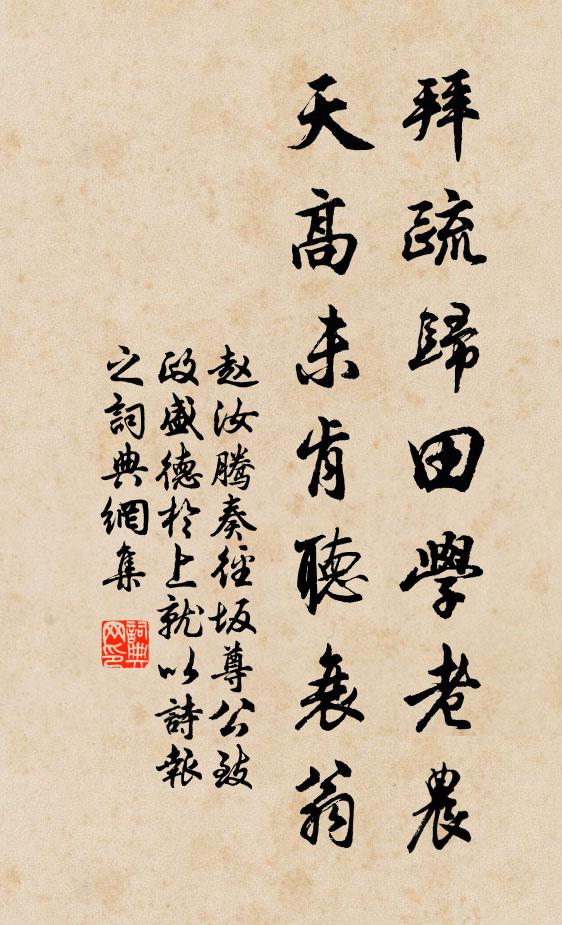 拜疏歸田學老農
天高未肯聽衰翁
赵汝騰奏徑坂尊公致
政盛德於上就以詩報
之詞典網集
詞典
网印